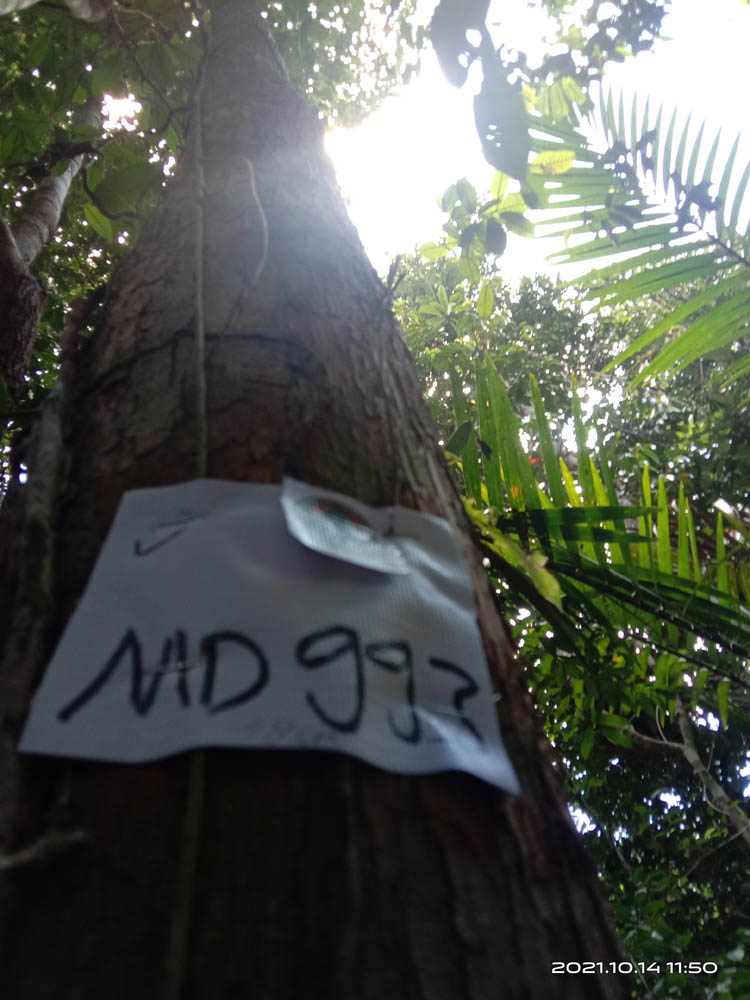 NID 993
2021.10.14 11:50